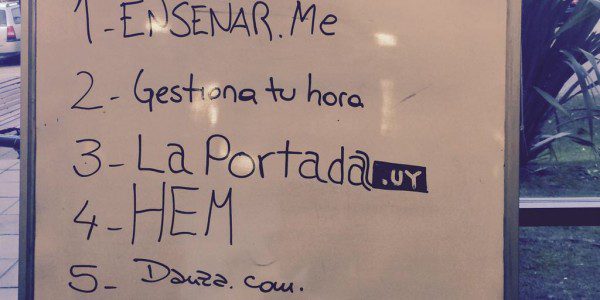 1-ENSENAR.Me
2- Gestiona tu hora
3-La Portada.UY
4-HEM
5- Danza.com.